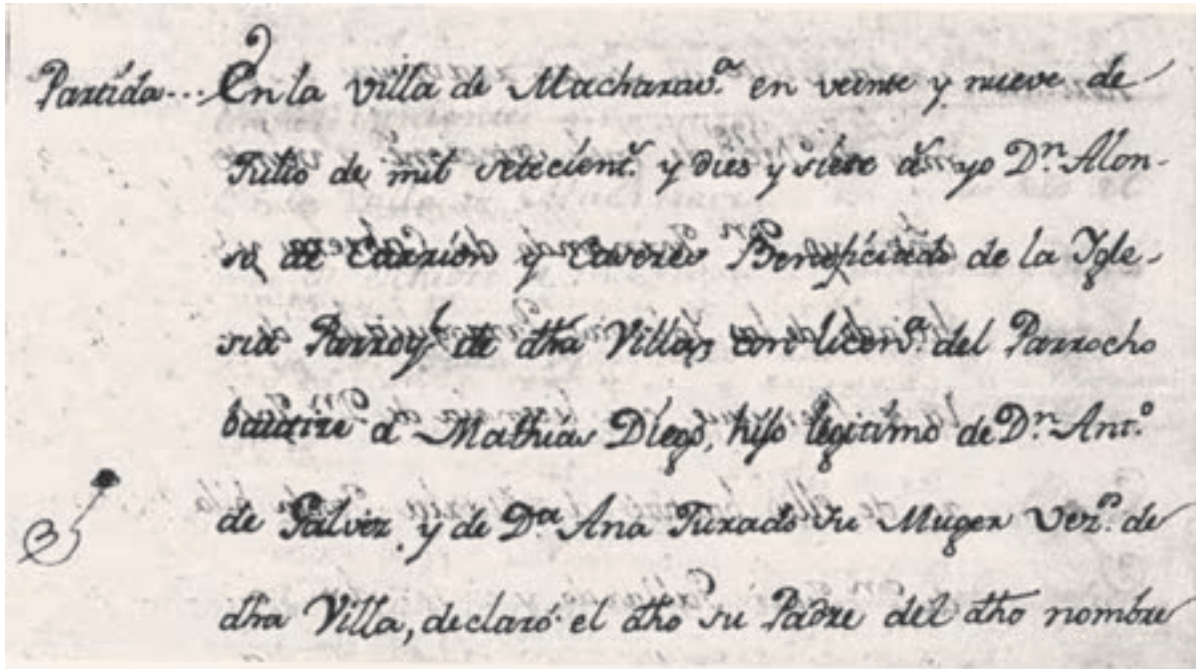 Partida... En la villa de Macharav.ª en veinte y nueve de
Julio de mil setecient.ˢ y dies y siete a.ˢ yo D.ⁿ Alon-
so de Carrion y Cavero Beneficiado de la Ygle-
sia Parroq.ˡ de dha Villa, con licen.ª del Parrocho
bautize a Mathias Diego, hijo legitimo de D.ⁿ Ant.º
de Galvez, y de D.ª Ana Jurado su Muger Vez.ˢ de
dha Villa, declaró el dho su Padre del dho nombre